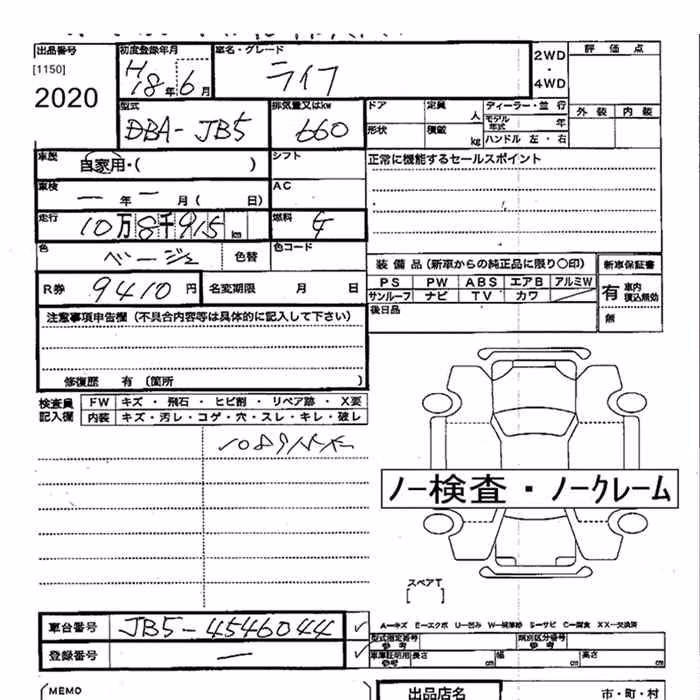 出品番号 初度登録年月 車名・グレード 2WD・4WD 評価点
[1150] H18年6月 ライフ
2020 外装 内装
型式 排気量又はkw ドア 定員 人 ディーラー・並行
DBA-JB5 660 モデル年式 年
形状 積載 kg ハンドル 左・右
車歴 自家用・( ) シフト 正常に機能するセールスポイント
車検 ー年ー月( 日) AC
走行 10万8千915km 燃料 G
色 ベージュ 色替 色コード
装備品(新車からの純正品に限り○印) 新車保証書
PS PW ABS エアB アルミW 有 車内積込無効
R券 9410円 名変期限 月 日 サンルーフ ナビ TV カワ
後日品 無
注意事項申告欄(不具合内容等は具体的に記入して下さい)
修復歴 有(箇所 )
検査員記入欄 FW キズ・飛石・ヒビ割・リペア跡・X要
内装 キズ・汚レ・コゲ・穴・スレ・キレ・破レ
ノー検査・ノークレーム
スペアT
[ ]
A―キズ E―エクボ U―凹み S―サビ C―腐食 XX―交換済
車台番号 JB5-4546044 ✓ 型式指定番号 参考 類別区分番号 参考
登録番号 ー ✓ 車庫証明用 参考 長さ cm 幅 cm 高さ cm
MEMO 出品店名 市・町・村